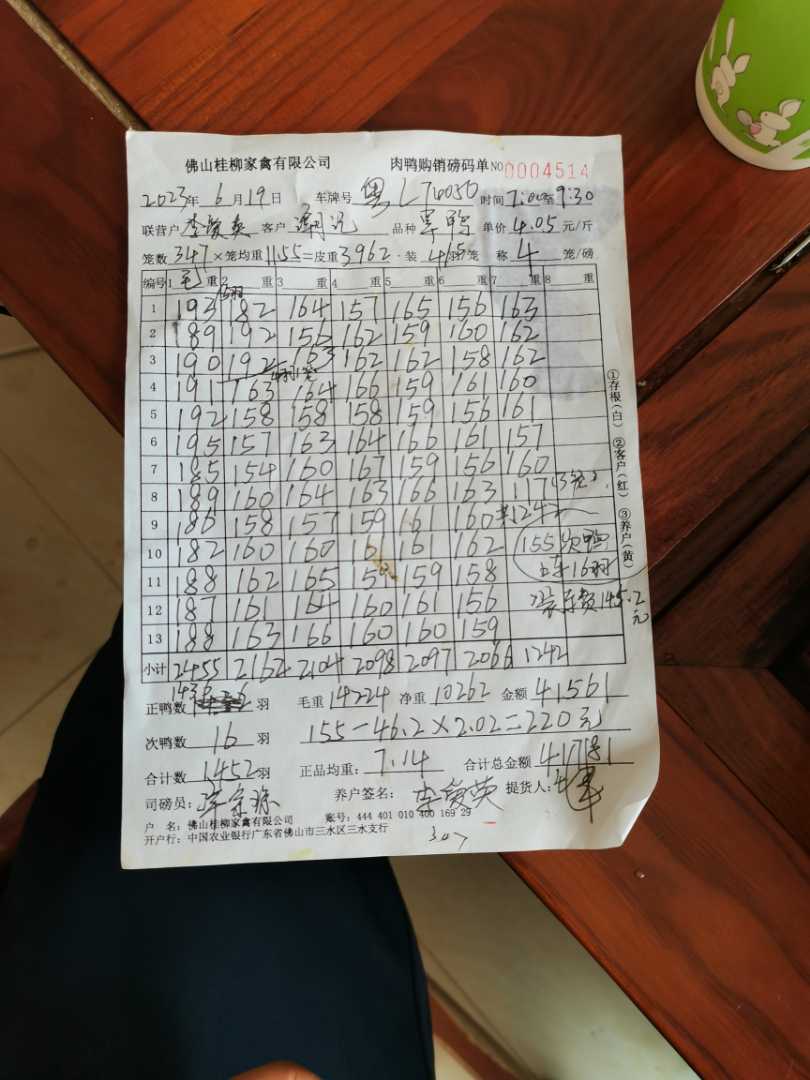 佛山桂柳家禽有限公司 肉鸭购销磅码单 NO 0004514
2023年6月19日 车牌号 粤L T0050 时间 7:00至9:30
联营户 李爱英 客户 品种 单价 4.05 元/斤
笼数 347 × 笼均重 1155 = 皮重 3962 · 装 4.65 羽/笼 称 4 笼/磅
编号 1 毛重 2 重 3 重 4 重 5 重 6 重 7 重 8 重
1 193 182 164 157 165 156 163
2 189 192 156 162 159 160 162
3 190 192 163 162 162 158 162
4 191 163 164 166 159 161 160
5 192 158 158 158 159 156 161
6 195 157 163 164 166 161 157
7 185 154 160 167 159 156 160
8 189 160 164 163 166 163 117
9 186 158 157 159 161 160 共1242
10 182 160 160 161 161 162 155次鸭
11 188 162 165 159 159 158 16羽
12 187 161 164 160 161 156 145.2元
13 188 163 166 160 160 159
小计 2455 2162 2104 2098 2097 2066 1242
正鸭数 1436 羽 毛重 14224 净重 10262 金额 41561
次鸭数 16 羽 155-46.2×2.02=220元
合计数 1452 羽 正品均重: 7.14 合计总金额 41781
司磅员: 养户签名: 李爱英 提货人:
户 名: 佛山桂柳家禽有限公司 账号: 444 401 010 400 169 29
开户行: 中国农业银行广东省佛山市三水区三水支行
①存根(白) ②客户(红) ③养户(黄)